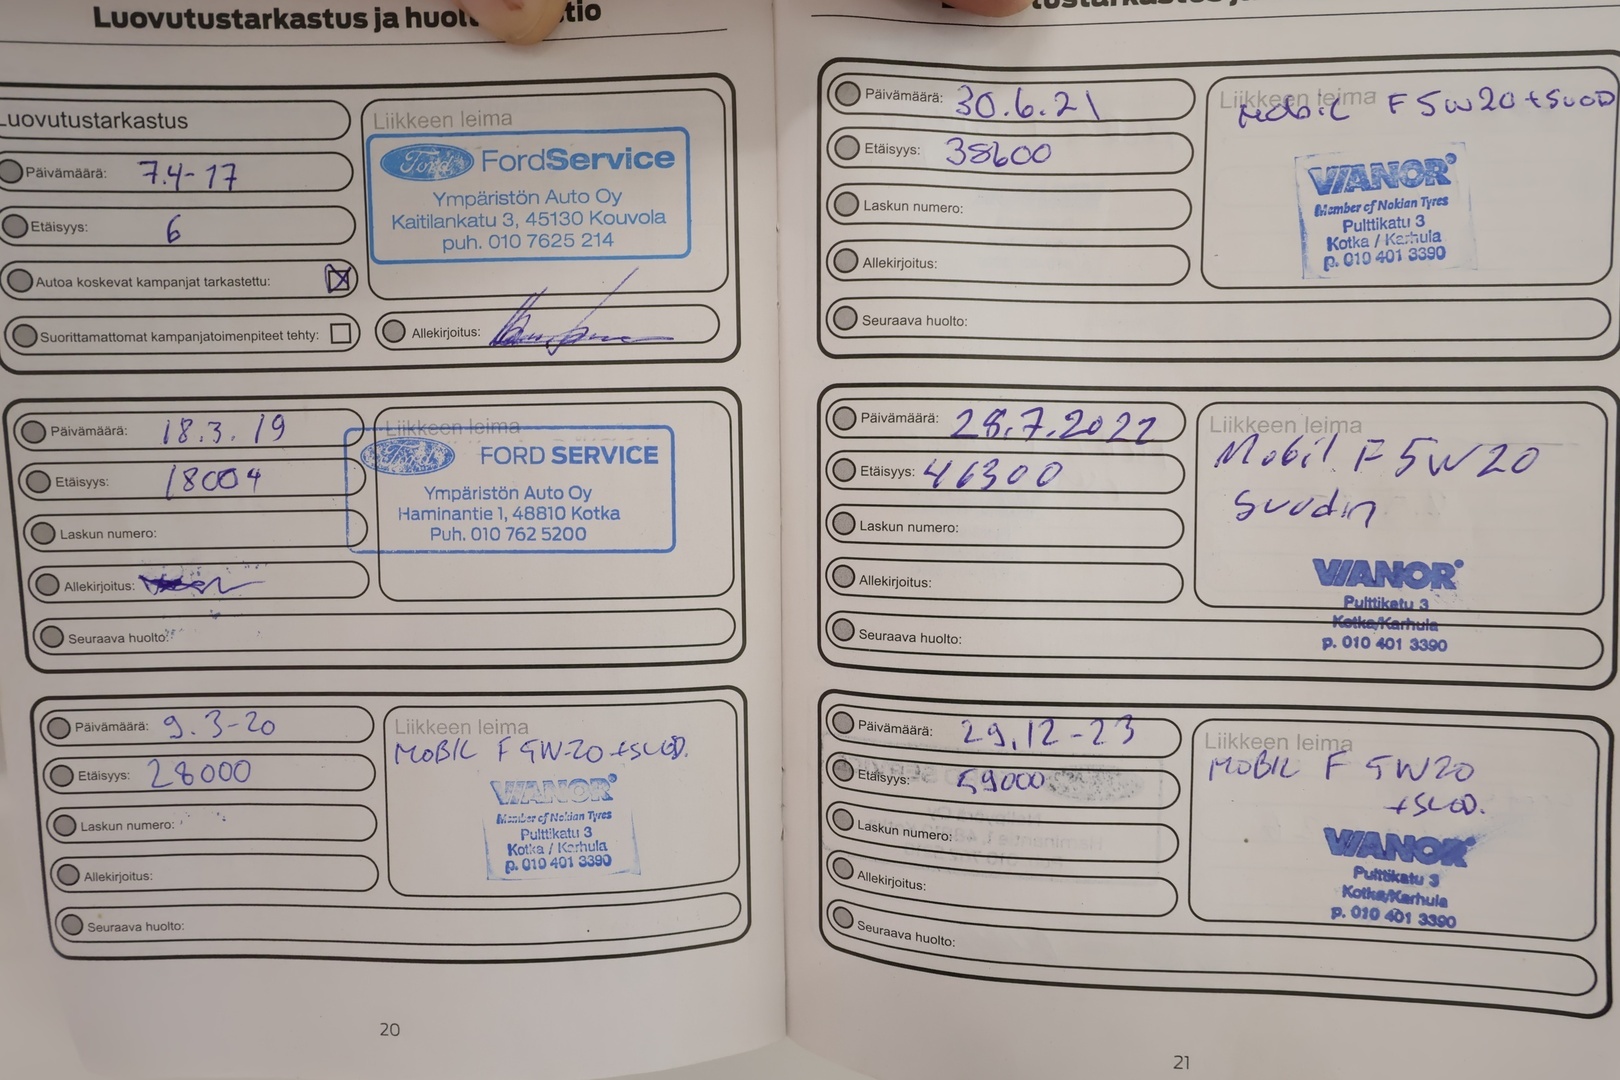 Luovutustarkastus ja huol
tio
Luovutustarkastus
Päivämäärä: 7.4-17
Etäisyys: 6
Autoa koskevat kampanjat tarkastettu:
Suorittamattomat kampanjatoimenpiteet tehty:
Liikkeen leima
Ford FordService
Ympäristön Auto Oy
Kaitilankatu 3, 45130 Kouvola
puh. 010 7625 214
Allekirjoitus:
Päivämäärä: 18.3.19
Etäisyys: 18004
Laskun numero:
Allekirjoitus:
Seuraava huolto:
Liikkeen leima
Ford FORD SERVICE
Ympäristön Auto Oy
Haminantie 1, 48810 Kotka
Puh. 010 762 5200
Päivämäärä: 9.3-20
Etäisyys: 28000
Laskun numero:
Allekirjoitus:
Seuraava huolto:
Liikkeen leima
MOBIL F 5W-20 +SUOD.
VIANOR
Member of Nokian Tyres
Pulttikatu 3
Kotka / Karhula
p. 010 401 3390
20
Päivämäärä: 30.6.21
Etäisyys: 38600
Laskun numero:
Allekirjoitus:
Seuraava huolto:
Liikkeen leima
Mobil F 5W20 +SUOD
VIANOR
Member of Nokian Tyres
Pulttikatu 3
Kotka / Karhula
p. 010 401 3390
Päivämäärä: 28.7.2022
Etäisyys: 46300
Laskun numero:
Allekirjoitus:
Seuraava huolto:
Liikkeen leima
Mobil F 5W20
Suodin
VIANOR
Pulttikatu 3
Kotka/Karhula
p. 010 401 3390
Päivämäärä: 29.12-23
Etäisyys: 59000
Laskun numero:
Allekirjoitus:
Seuraava huolto:
Liikkeen leima
MOBIL F 5W20
+SUOD.
VIANOR
Pulttikatu 3
Kotka/Karhula
p. 010 401 3390
21